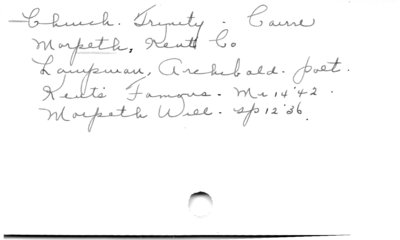 Church. Trynity. Cairne
Morpeth, Kent Co
Lampman, Archibald. poet.
Kent's Famous. Mr 14 '42.
Morpeth Will. Sp 12 '36.